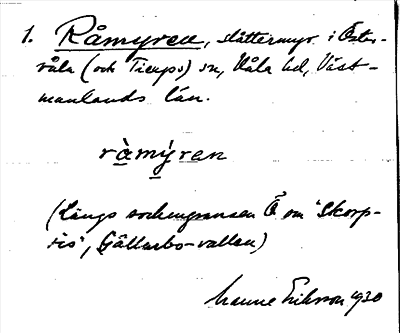 1. Råmyren, slåttermyr i Öster-
våla (och Tierps) sn, Våla hd, Väst-
manlands län.
ràmýran
(Längs sockengränsen Ö om "Skorp-
ris", Gällarbo-vallen)
Manne Eriksson 1930